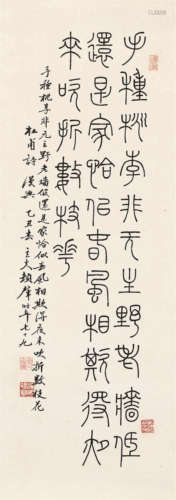 手種桃李非无主野老牆低
還是家恰佀春風相欺得夜
來吹折數枝花
手種桃李非无主野老牆低還是家恰似春風相欺得夜來吹折數枝花
杜甫詩 漫興 乙丑春 時年七十九